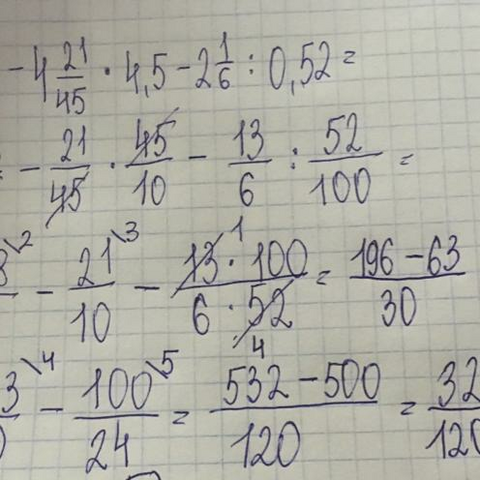 - 4 21/45 · 4,5 - 2 1/6 : 0,52 =
- 21/45 · 45/10 - 13/6 : 52/100 =
\2 - 21\3/10 - 13·100/6·52 1 4 = 196-63/30
3\4 - 100\5/24 = 532-500/120 = 32/120